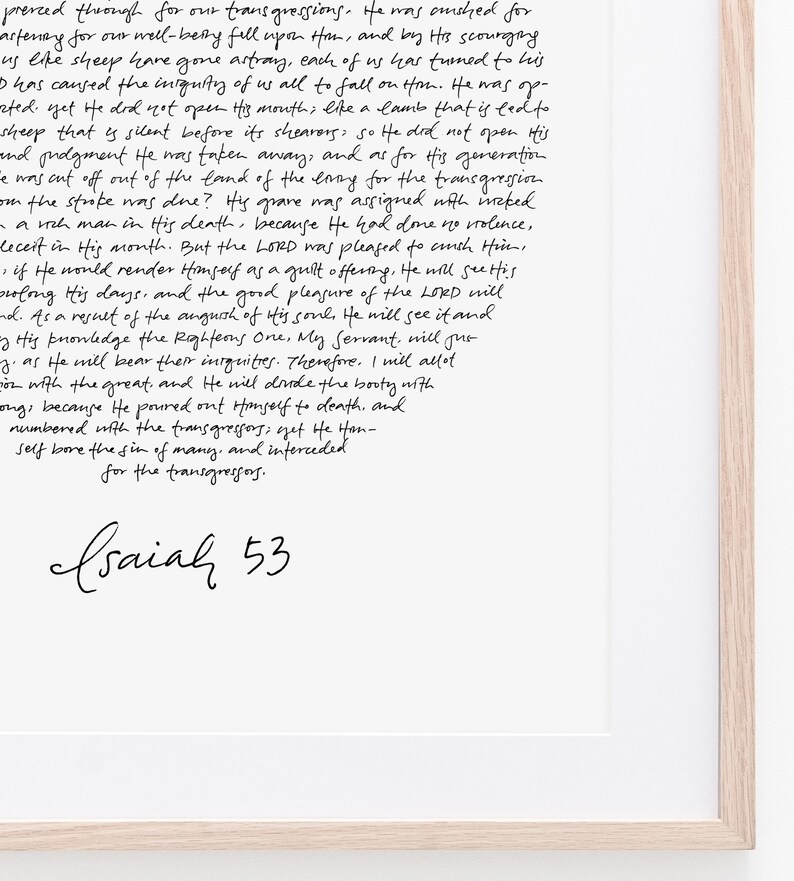 pierced through for our transgressions, He was crushed for
astening for our well-being fell upon Him, and by His scourging
us like sheep have gone astray, each of us has turned to his
D has caused the iniquity of us all to fall on Him. He was op-
cted, yet He did not open His mouth; like a lamb that is led to
sheep that is silent before its shearers; so He did not open His
and judgment He was taken away; and as for His generation
e was cut off out of the land of the living for the transgression
om the stroke was due? His grave was assigned with wicked
a rich man in His death, because He had done no violence,
deceit in His mouth. But the LORD was pleased to crush Him,
; if He would render Himself as a guilt offering, He will see His
prolong His days, and the good pleasure of the LORD will
nd. As a result of the anguish of His soul, He will see it and
y His knowledge the Righteous One, My Servant, will jus-
y, as He will bear their iniquities. Therefore, I will allot
ion with the great, and He will divide the booty with
ong; because He poured out Himself to death, and
numbered with the transgressors; yet He Him-
self bore the sin of many, and interceded
for the transgressors.
Isaiah 53